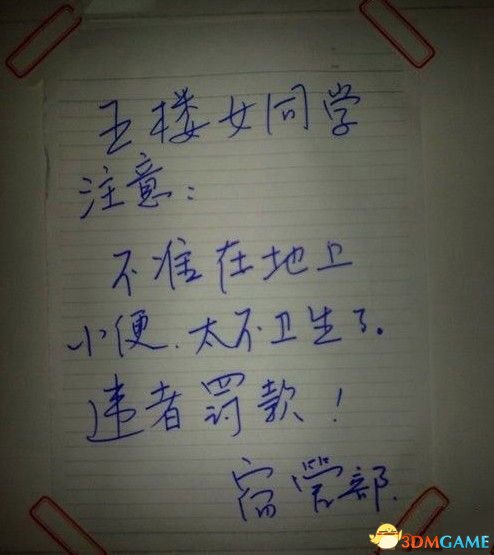 五楼女同学
注意：
不准在地上
小便.太不卫生了。
违者罚款！
宿管部.
3DMGAME